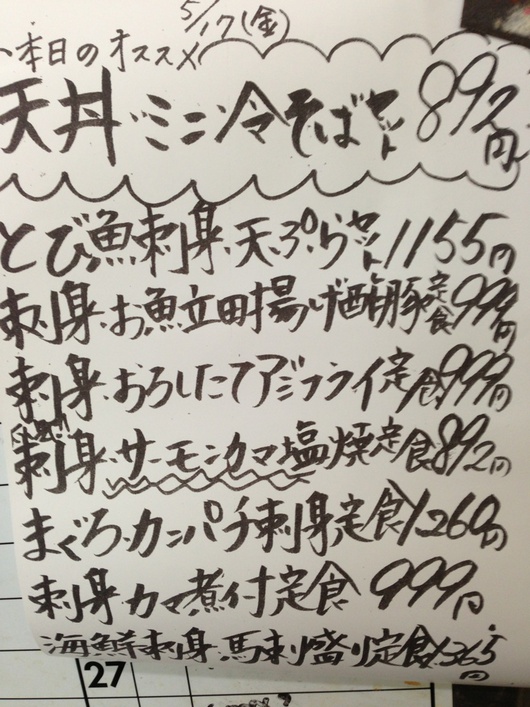 5/17(金)
本日のオススメ
天丼・ミニ冷そばセット 892円
とび魚刺身・天ぷらセット 1155円
刺身・お魚立田揚げ 豚定食 999円
刺身・おろしたてアジフライ定食 999円
刺身・サーモンカマ塩焼定食 892円
まぐろ・カンパチ刺身定食 1260円
刺身・カマ煮付定食 999円
海鮮刺身・馬刺盛り定食 1365円
27